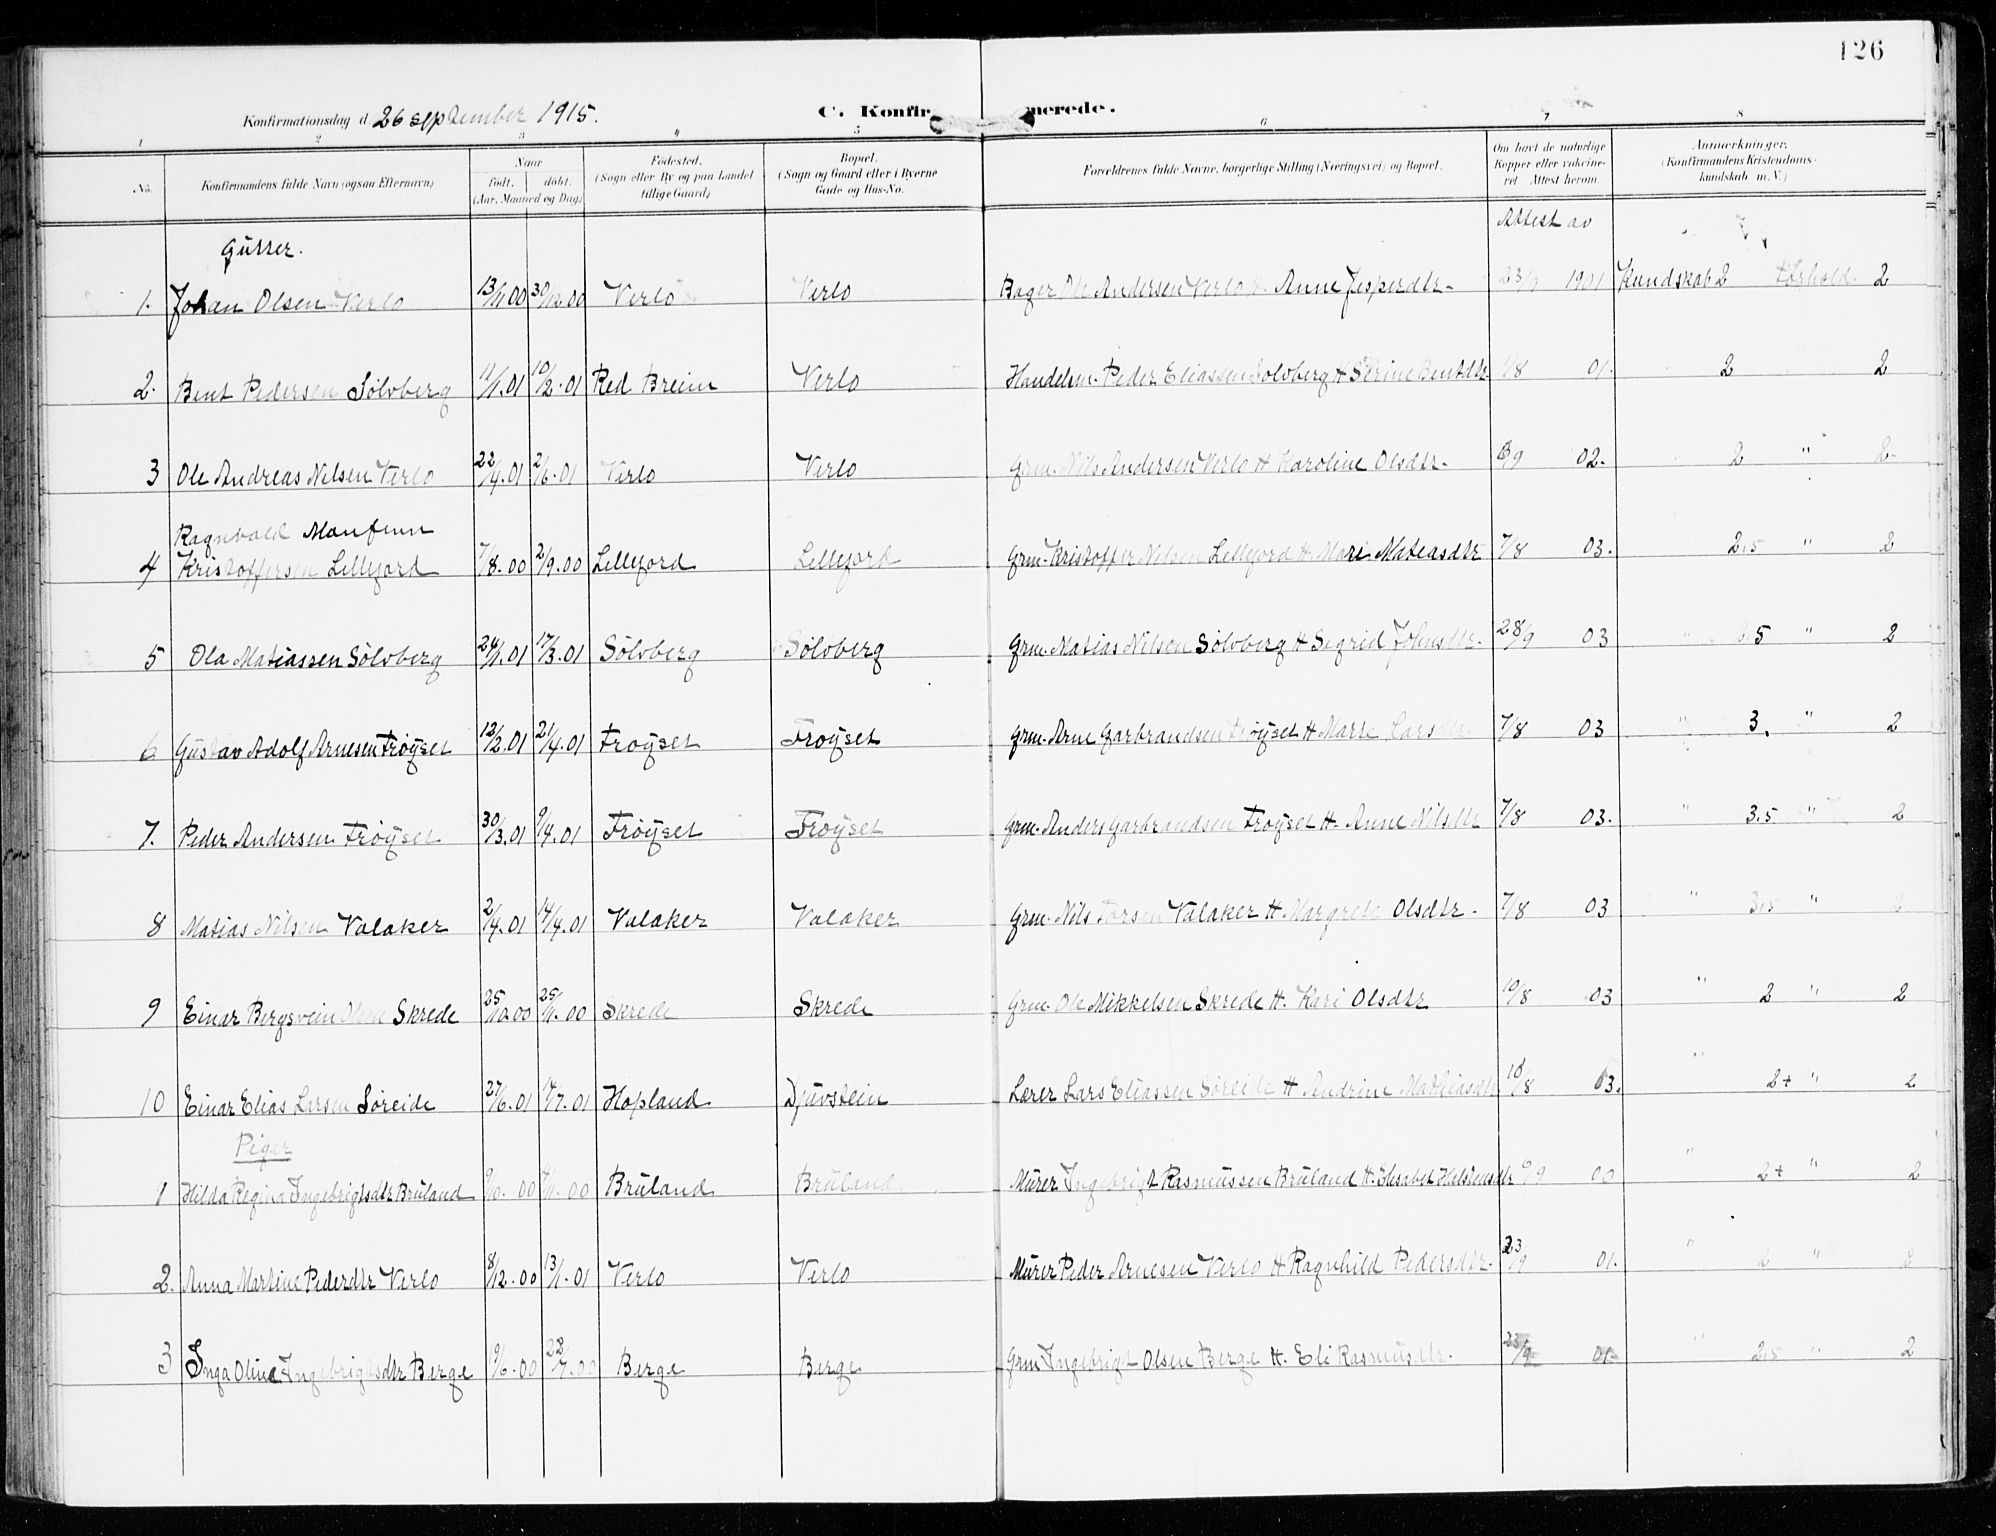 126
Konfirmationsdag d. 26 september 1915.
C. Konfirmerede.
1 2 3 " 5 6 7 8
No. Konfirmandens fulde Navn (ogsaa Efternavn) Naar født. døbt. (Aar, Maaned og Dag) Fødested. (Sogn eller By og paa Landet tillige Gaard) Bopæl. (Sogn og Gaard eller i Byerne Gade og Hus-No. Forældrenes fulde Navne, borgerlige Stilling (Næringsvei) og Bopæl. Om havt de naturlige Kopper eller vakcineret. Attest herom. Anmærkninger. (Konfirmandens Kristendomskundskab m. V.)
Attest av
Gutter.
1. Johan Olsen Verlo 13/11 00 30/12.00 Verlo Verlo Bager Ole Andersen Verlo H. Anne Jesperdtr. 23/9 1901 Kundskab 2 Forhold 2
2. Bent Pedersen Sölvberg 11/1.01 10/2.01 Red Breim Verlo Handelsm. Peder Eliassen Sølvberg H Serine Bentdtr. 1/8 01. 2 2
3 Ole Andreas Nilsen Verlo 22/4.01 2/6.01 Verlo Verlo Grm. Nils Andersen Verlo H Karoline Olsdtr. /9 02. 2 " 2
Ragnvald Monfinn
4 Kristoffersen Lillefjord 7/8.00 2/9.00 Lillefjord Lillefjord Grm. Kristoffer Nilsen Lillefjord H Mari Matiasdtr 7/8 03. 2,5 " 2
5 Ola Matiassen Sölvberg 24/1.01 17/3.01 Sölvberg Sölvberg Grm. Matias Nilsen Sölvberg H Sigrid Johnsdtr. 28/9 03 " 2,5 " 2
6 Gustav Adolf Arnesen Fröyset 12/2.01 21/4.01 Fröyset Fröyset Grm. Arne Garbrandsen Fröyset H Marte Larsdtr 7/8 03 " 3. " 2
7. Peder Andersen Fröyset 30/3.01 9/4.01 Fröyset Fröyset Grm. Anders Garbrandsen Fröyset H. Anne Nilsdtr 7/8 03. " 3,5 " 2
8 Matias Nilsen Valaker 2/4.01 14/4.01 Valaker Valaker Grm. Nils Torsen Valaker H Margrete Olsdtr. 7/8 03 " 3,5 " 2
9 Einar Bergsvein Olsen Skrede 25/10.00 25/11.00 Skrede Skrede Grm. Ole Mikkelsen Skrede H. Kari Olsdtr 10/8 03 " 2 " 2
10 Einar Elias Larsen Søreide 27/6.01 14/7.01 Hopland Djuvstein Lærer Lars Eliassen Søreide H Andrine Mathiasdtr 10/8 03. " 2+ " 2
Piger
1 Hilda Regina Ingebrigtsdtr Bruland 9/10.00 4/11.00 Bruland Bruland Murer Ingebrigt Rasmussen Bruland H. Elisabet Halstensdtr 6/9 00 " 2+ " 2
2. Anna Martine Pederdtr Verlo 8/12.00 13/1.01 Verlo Verlo Murer Peder Arnesen Verlo H Ragnhild Pedersdtr. 23/9 01. " 2 " 2
3 Inga Oline Ingebrigtsdtr Berge 19/6.00 22/7.00 Berge Berge Grm Ingebrigt Olsen Berge H. Eli Rasmusdtr. 23/9 01 " 2,5 " 2